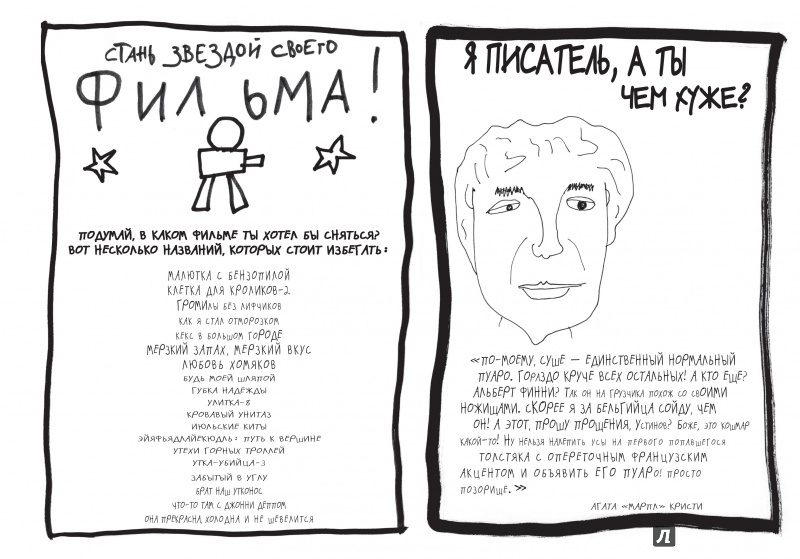 СТАНЬ ЗВЕЗДОЙ СВОЕГО
ФИЛЬМА!
ПОДУМАЙ, В КАКОМ ФИЛЬМЕ ТЫ ХОТЕЛ БЫ СНЯТЬСЯ?
ВОТ НЕСКОЛЬКО НАЗВАНИЙ, КОТОРЫХ СТОИТ ИЗБЕГАТЬ:
МАЛЮТКА С БЕНЗОПИЛОЙ
КЛЕТКА ДЛЯ КРОЛИКОВ-2
ГРОМИЛЫ БЕЗ ЛИФЧИКОВ
КАК Я СТАЛ ОТМОРОЗКОМ
КЕКС В БОЛЬШОМ ГОРОДЕ
МЕРЗКИЙ ЗАПАХ, МЕРЗКИЙ ВКУС
ЛЮБОВЬ ХОМЯКОВ
БУДЬ МОЕЙ ШЛЯПОЙ
ГУБКА НАДЕЖДЫ
УЛИТКА-8
КРОВАВЫЙ УНИТАЗ
ИЮЛЬСКИЕ КИТЫ
ЭЙЯФЬЯДЛАЙЕКЮДЛЬ: ПУТЬ К ВЕРШИНЕ
УТЕХИ ГОРНЫХ ТРОЛЛЕЙ
УТКА-УБИЙЦА-3
ЗАБЫТЫЙ В УГЛУ
БРАТ НАШ УТКОНОС
ЧТО-ТО ТАМ С ДЖОННИ ДЕППОМ
ОНА ПРЕКРАСНА, ХОЛОДНА И НЕ ШЕВЕЛИТСЯ
Я ПИСАТЕЛЬ, А ТЫ
ЧЕМ ХУЖЕ?
«ПО-МОЕМУ, СУШЕ — ЕДИНСТВЕННЫЙ НОРМАЛЬНЫЙ
ПУАРО. ГОРАЗДО КРУЧЕ ВСЕХ ОСТАЛЬНЫХ! А КТО ЕЩЕ?
АЛЬБЕРТ ФИННИ? ТАК ОН НА ГРУЗЧИКА ПОХОЖ СО СВОИМИ
НОЖИЩАМИ. СКОРЕЕ Я ЗА БЕЛЬГИЙЦА СОЙДУ, ЧЕМ
ОН! А ЭТОТ, ПРОШУ ПРОЩЕНИЯ, УСТИНОВ? БОЖЕ, ЭТО КОШМАР
КАКОЙ-ТО! НУ НЕЛЬЗЯ НАЛЕПИТЬ УСЫ НА ПЕРВОГО ПОПАВШЕГОСЯ
ТОЛСТЯКА С ОПЕРЕТОЧНЫМ ФРАНЦУЗСКИМ
АКЦЕНТОМ И ОБЪЯВИТЬ ЕГО ПУАРО! ПРОСТО
ПОЗОРИЩЕ.»
АГАТА «МАРПЛ» КРИСТИ
Л